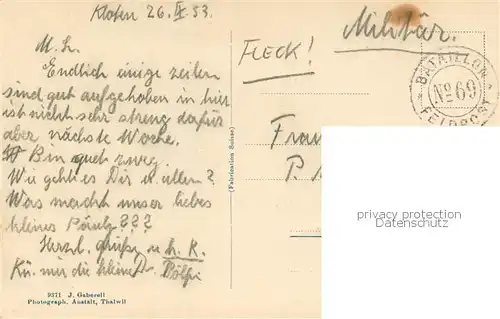 Kloten 26. IX. 53.
M. L.
Endlich einige zeilen
sind gut aufgehoben in hier
ist nicht sehr streng dafür
aber nächste Woche.
Bin guet zweg.
Wie geht es Dir u. allen?
Was macht unser liebes
kleines ???
Herzl. grüße u. h. K.
Kü. mir die kleine
9371 J. Gaberell
Photograph. Anstalt, Thalwil
(Fabrication Suisse)
FLECK!
Militär.
BATAILLON
No 69
FELDPOST
Frau
P.
privacy protection
watermark